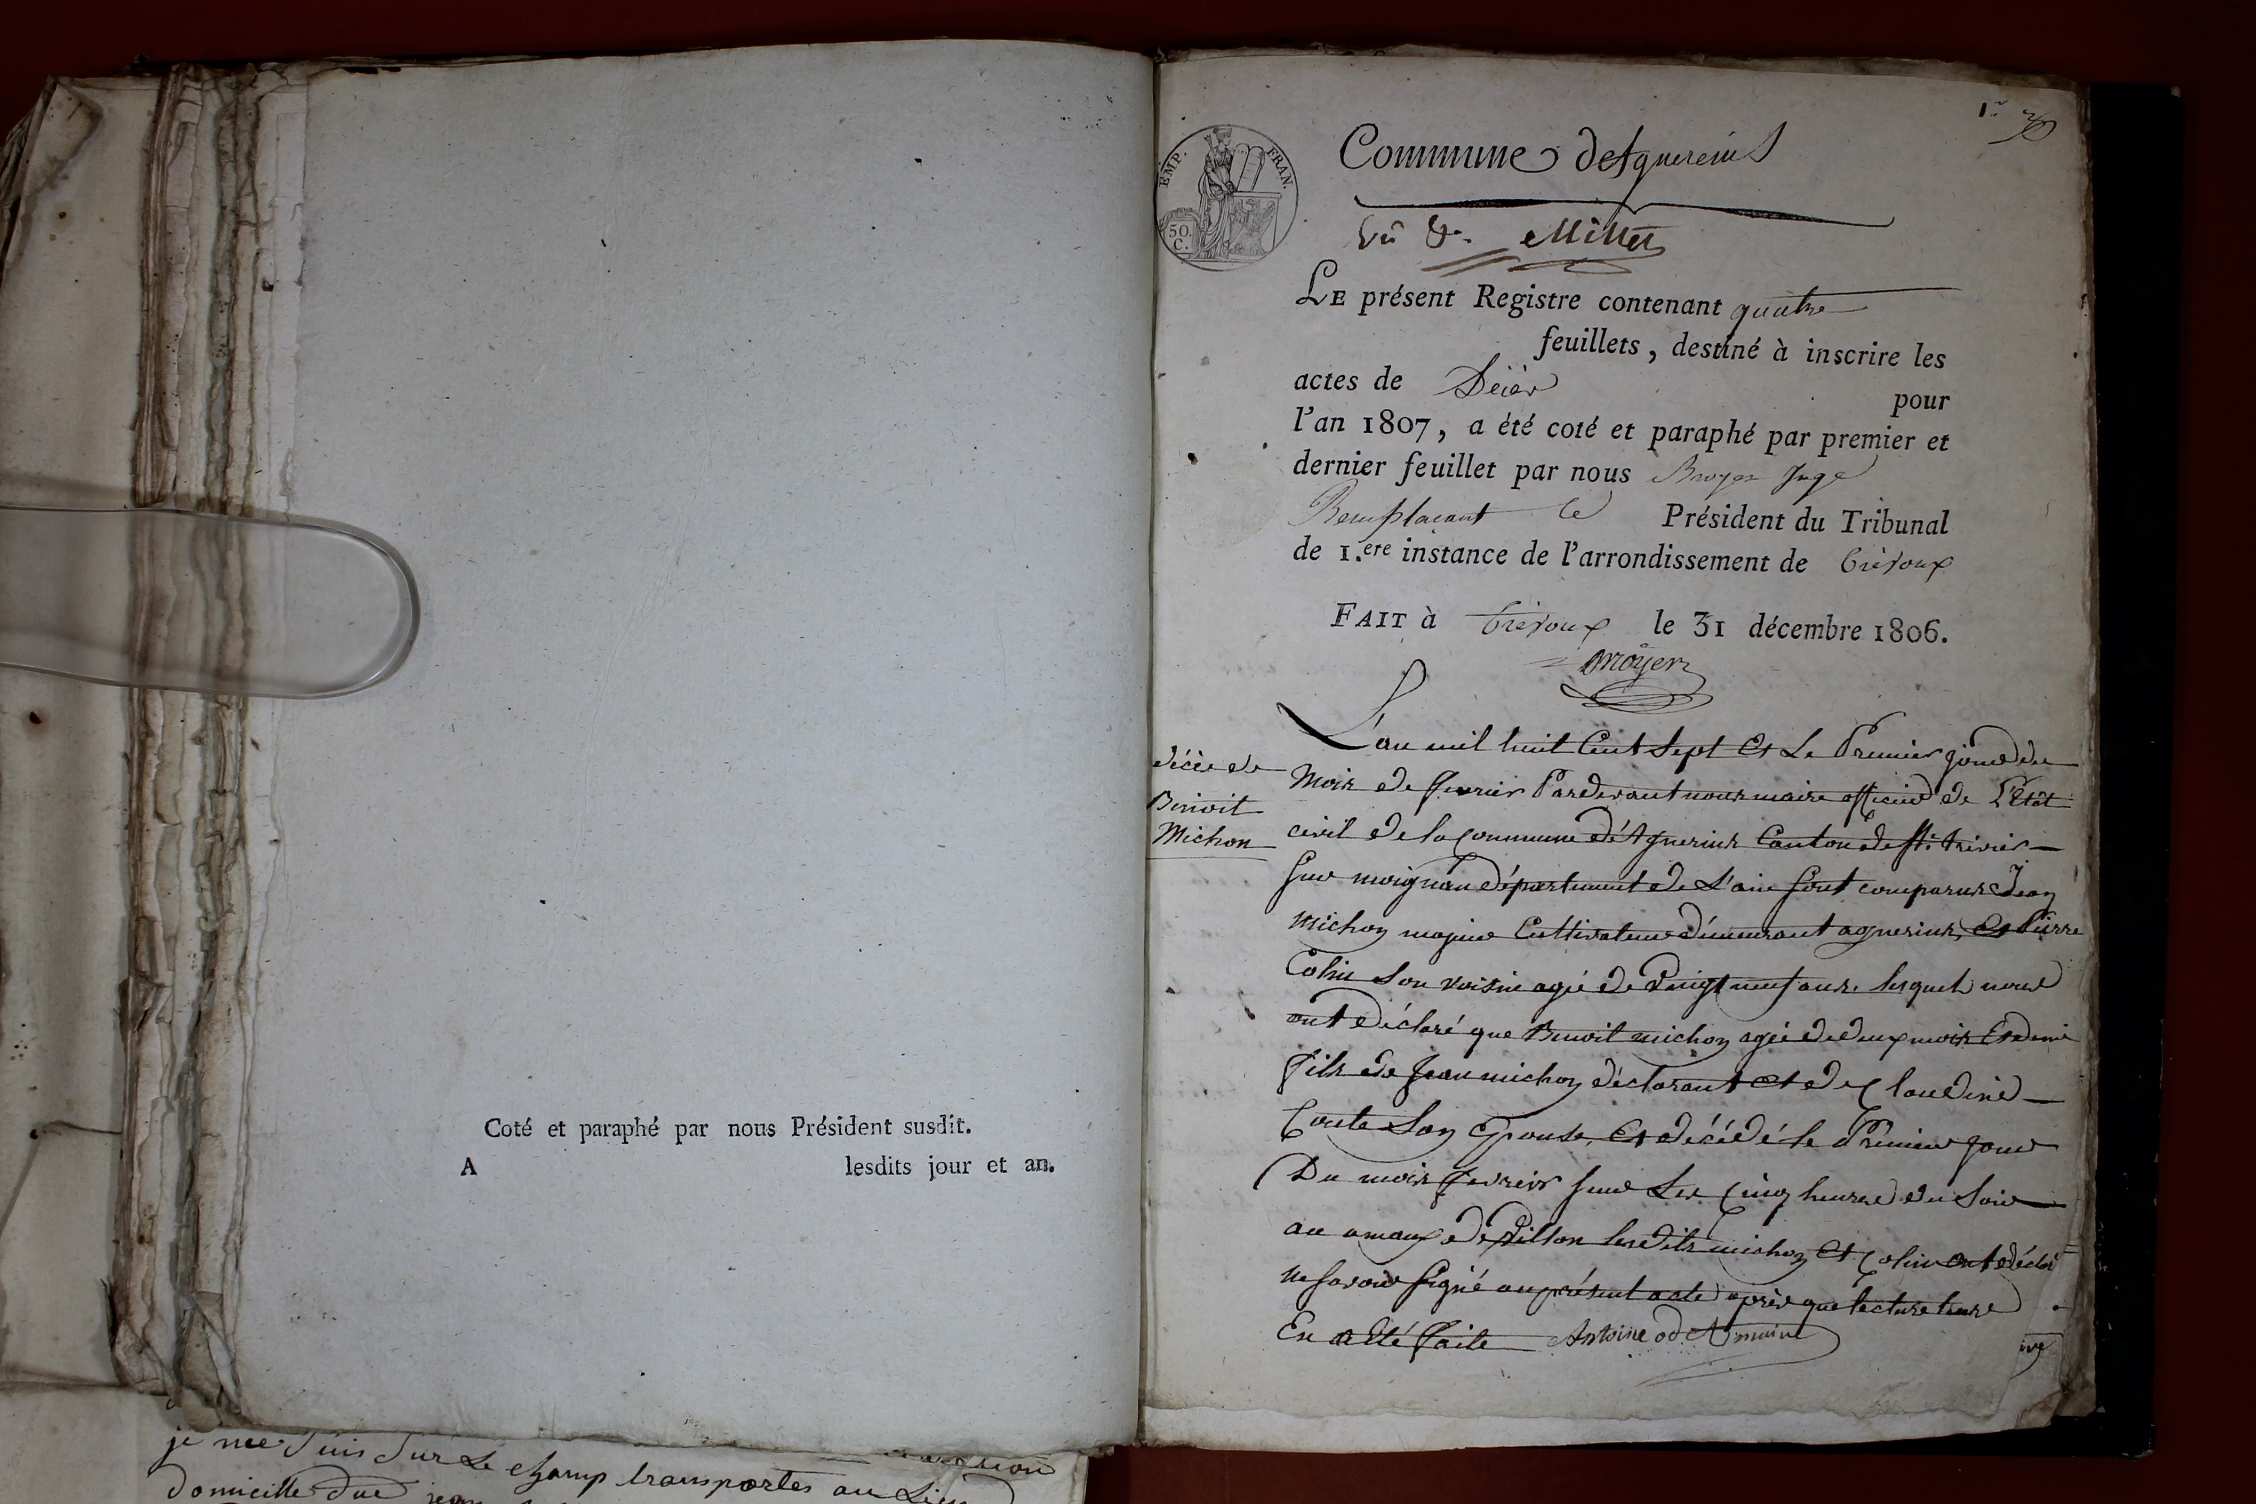 Coté et paraphé par nous Président susdit.
A lesdits jour et an.
je me suis sur le champ transportés au Lieu
domicille du
EMP. FRAN.
50.
C.
1er
Commune d'Agnereins
Vu &.
LE présent Registre contenant quatre
feuillets, destiné à inscrire les
actes de Décès
pour
l'an 1807, a été coté et paraphé par premier et
dernier feuillet par nous Juge
Remplacant le Président du Tribunal
de 1.ere instance de l'arrondissement de trévoux
FAIT à trévoux le 31 décembre 1806.
décès de
Benoit
Michon
L'an mil huit Cent Sept et Le Premier jour du
Mois de fevrier Pardevant nous maire officier de L'Etât
civil de la Commune d'Agnerins Canton de St. trivier
sur moignan département de L'ain sont comparus Jean
Michon majeur Cultivateur démeurant agnerins, et Pierre
Colin son voisin agé de Vingt neuf ans. lesquels nous
ont déclaré que Benoit michon agé de deux mois et demi
fils de Jean michon déclarant et de Claudine
son Epouse, est décédé le Prémier jour
Du mois fevrier sur Les Cinq heures du Soir
au lesdits michon et Colin ont déclaré
ne savoir signé au présent acte après que lecture leure
En a Eté faite Antoine maire